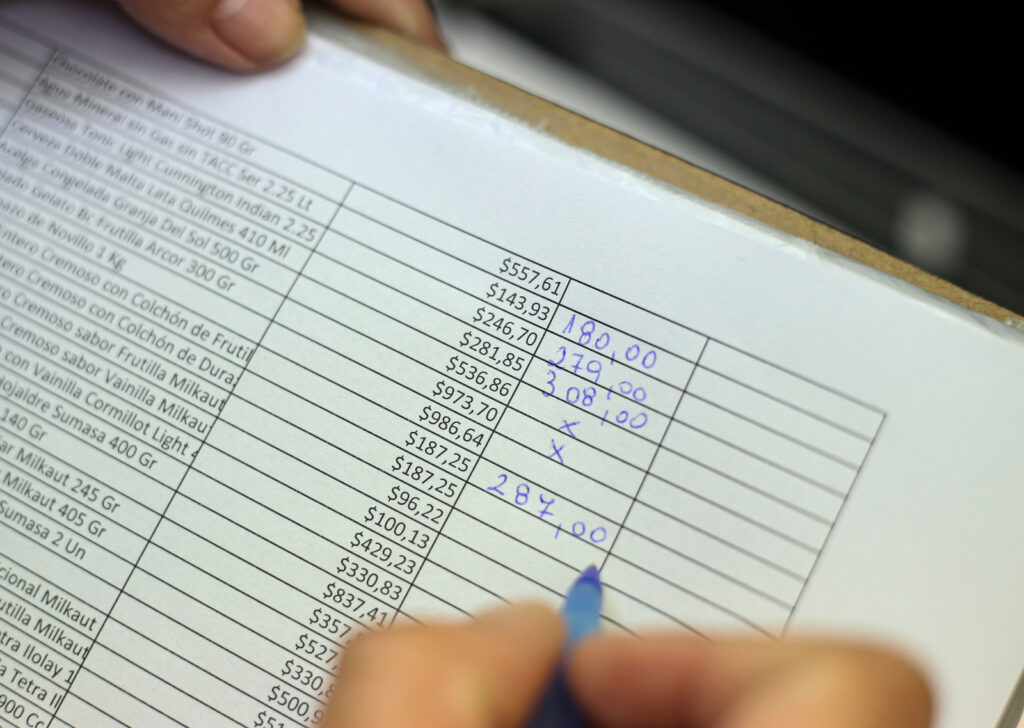 Chocolate con Maní Shot 90 Gr $557,61
Agua Mineral sin Gas sin TACC Ser 2.25 Lt $143,93 180,00
Gaseosa Tonic Light Cunnington Indian 2.25 $246,70 279,00
Cerveza Doble Malta Lata Quilmes 410 Ml $281,85 308,00
Acelga Congelada Granja Del Sol 500 Gr $536,86 x
Helado Gelato Bc Frutilla Arcor 300 Gr $973,70 x
de Novillo 1 Kg $986,64
Entero Cremoso con Colchón de Frutil $187,25 287,00
Entero Cremoso con Colchón de Dura $187,25
Cremoso sabor Frutilla Milkaut $96,22
Cremoso sabor Vainilla Milkaut $100,13
con Vainilla Cormillot Light $429,23
Hojaldre Sumasa 400 Gr $330,83
140 Gr $837,41
Milkaut 245 Gr $357,
Milkaut 405 Gr $527,
Sumasa 2 Un $330,8
$500,9
cional Milkaut $51
utilla Milkaut
tra Ilolay 1
a Tetra Il
900 Cc